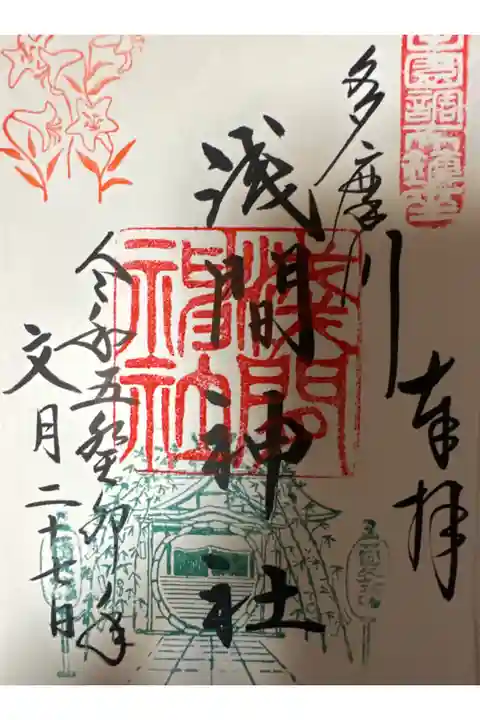 奉拝
多摩川
浅間神社
浅間
神社
令和五癸卯年
文月二十七日